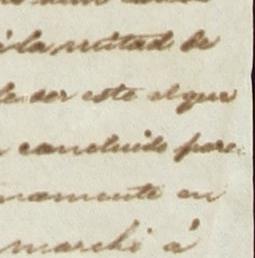 á la mitad de
de ser este el que
concluido pare
namente en
marché á